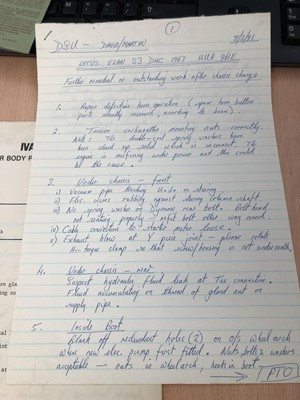 1
DSU - DAVID/MARTIN
LOTUS ELAN S3 DHC 1967
Further remedial or outstanding work after chassis change.
1. Repair defective horn operation (new horn button
parts usually
2. Tension carburettor mounting nuts correctly.
Note: The double-coil spring washers have
been clamped up solid which is incorrect. The
engine is misfiring under power and this could
be the cause.
3. Under chassis - front
i) Vacuum pipe touching U.J. in steering
ii) Elec. wires rubbing against steering column shaft.
iii) No spring washer on Dynamo rear bolt. Bolt head
not seating properly - refit bolt other way round.
iv) Cable connection to starter motor loose.
v) Exhaust blow at Y piece joint - please rotate
clamp so that screw/housing is not underneath.
4. Under chassis - rear
Suspect hydraulic fluid leak at Tee connection.
Fluid accumulating on thread of gland nut on
supply pipe.
5. Inside Boot.
Blank off redundant holes (2) on o/s wheel arch
when new elec. pump first fitted. Nuts, bolts & washers
acceptable - nuts in wheel arch, heads in boot.
PTO
IVA
OR BODY